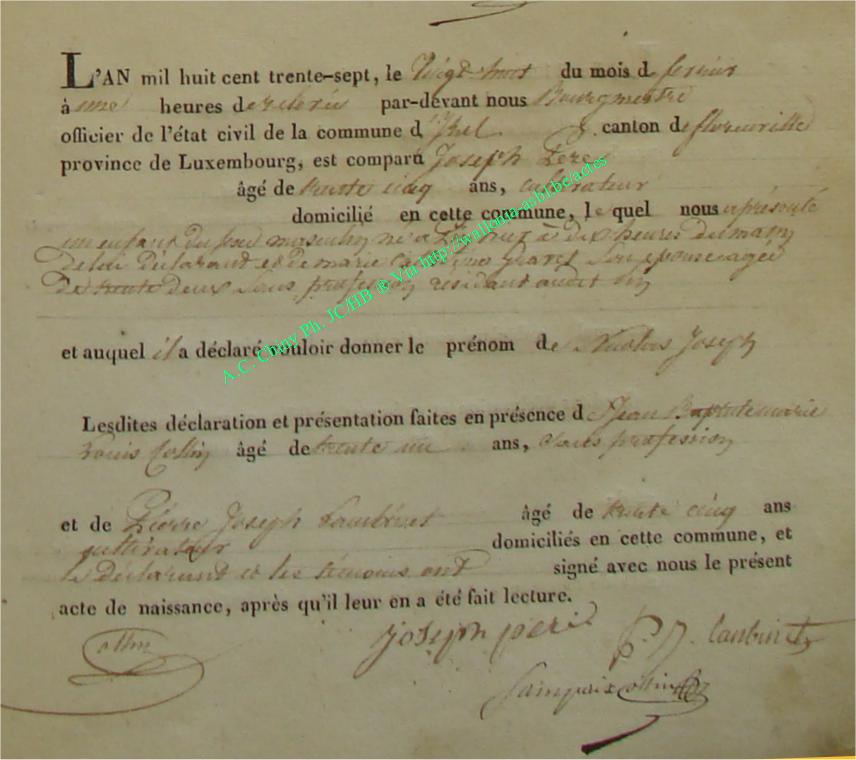 L'AN mil huit cent trente-sept, le Vingt huit du mois de fevrier
à une heures de relevée par-devant nous Bourgmestre
officier de l'état civil de la commune d'Izel canton de florenville
province de Luxembourg, est comparu Joseph
âgé de trente cinq ans, cultivateur
domicilié en cette commune, lequel nous a présenté
un enfant du sexe masculin né à à dix heures du matin
de lui déclarant et de marie son épouse agée
de trente deux sans profession résidant audit
et auquel il a déclaré vouloir donner le prénom de Nicolas Joseph
Lesdites déclaration et présentation faites en présence de Jean Baptiste marie
Louis Collin âgé de trente un ans, sans profession
et de Pierre Joseph Lambinet âgé de trente cinq ans
cultivateur domiciliés en cette commune, et
le déclarant et les témoins ont signé avec nous le présent
acte de naissance, après qu'il leur en a été fait lecture.
joseph P. J. Lambinet
A.C. Chiny Ph. JC/HB ® Via http://wallonia-asbl.be/actes